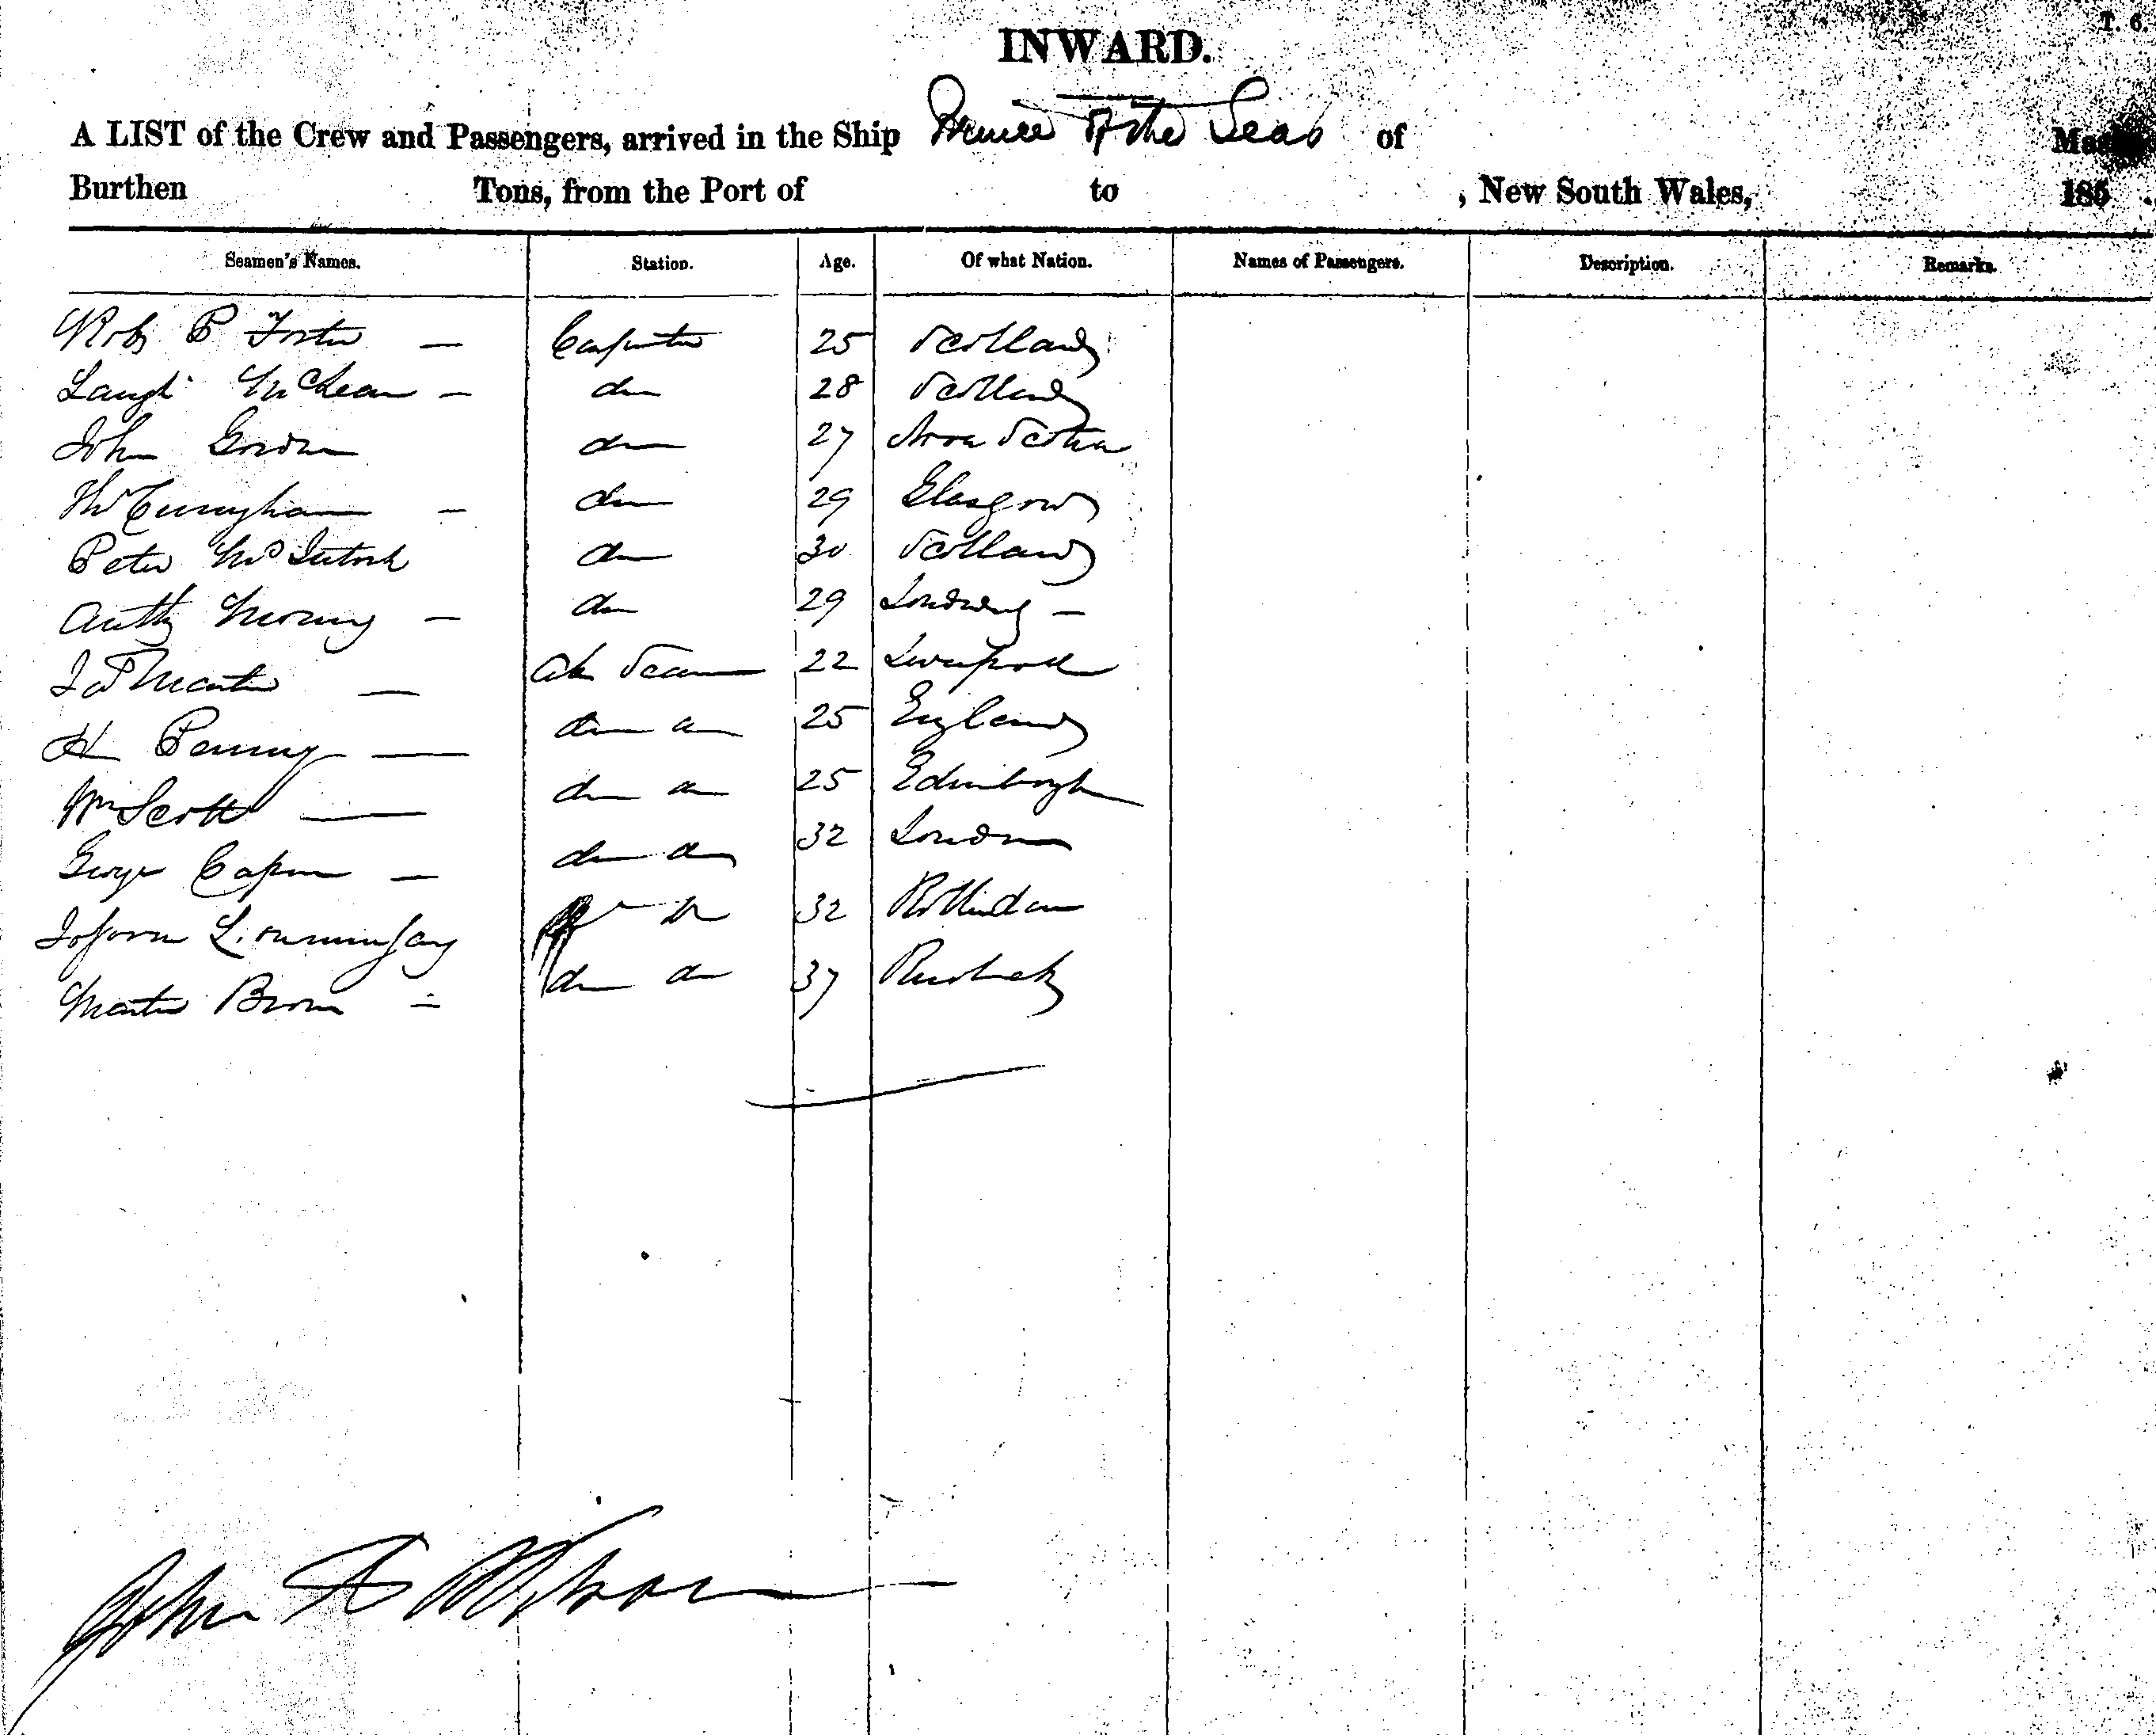 T. 6.
INWARD.
A LIST of the Crew and Passengers, arrived in the Ship Prince of the Seas of
Burthen Tons, from the Port of to , New South Wales, 185 .
Seamen's Names. Station. Age. Of what Nation. Names of Passengers. Description. Remarks.
Robt P Foster — Carpenter 25 Scotland
Laugh McLean — do 28 Scotland
John Gordon do 27 Nova Scotia
Cunyham — do 29 Glasgow
Peter McIntosh do 30 Scotland
Anthy — do 29 —
Martin — Ab Seam 22 Liverpool
H Penny — do do 25 England
Wm Scott — do do 25 Edinborgh
George — do do 32 London
do 32 Rotterdam
Martin Brown — do do 37
John